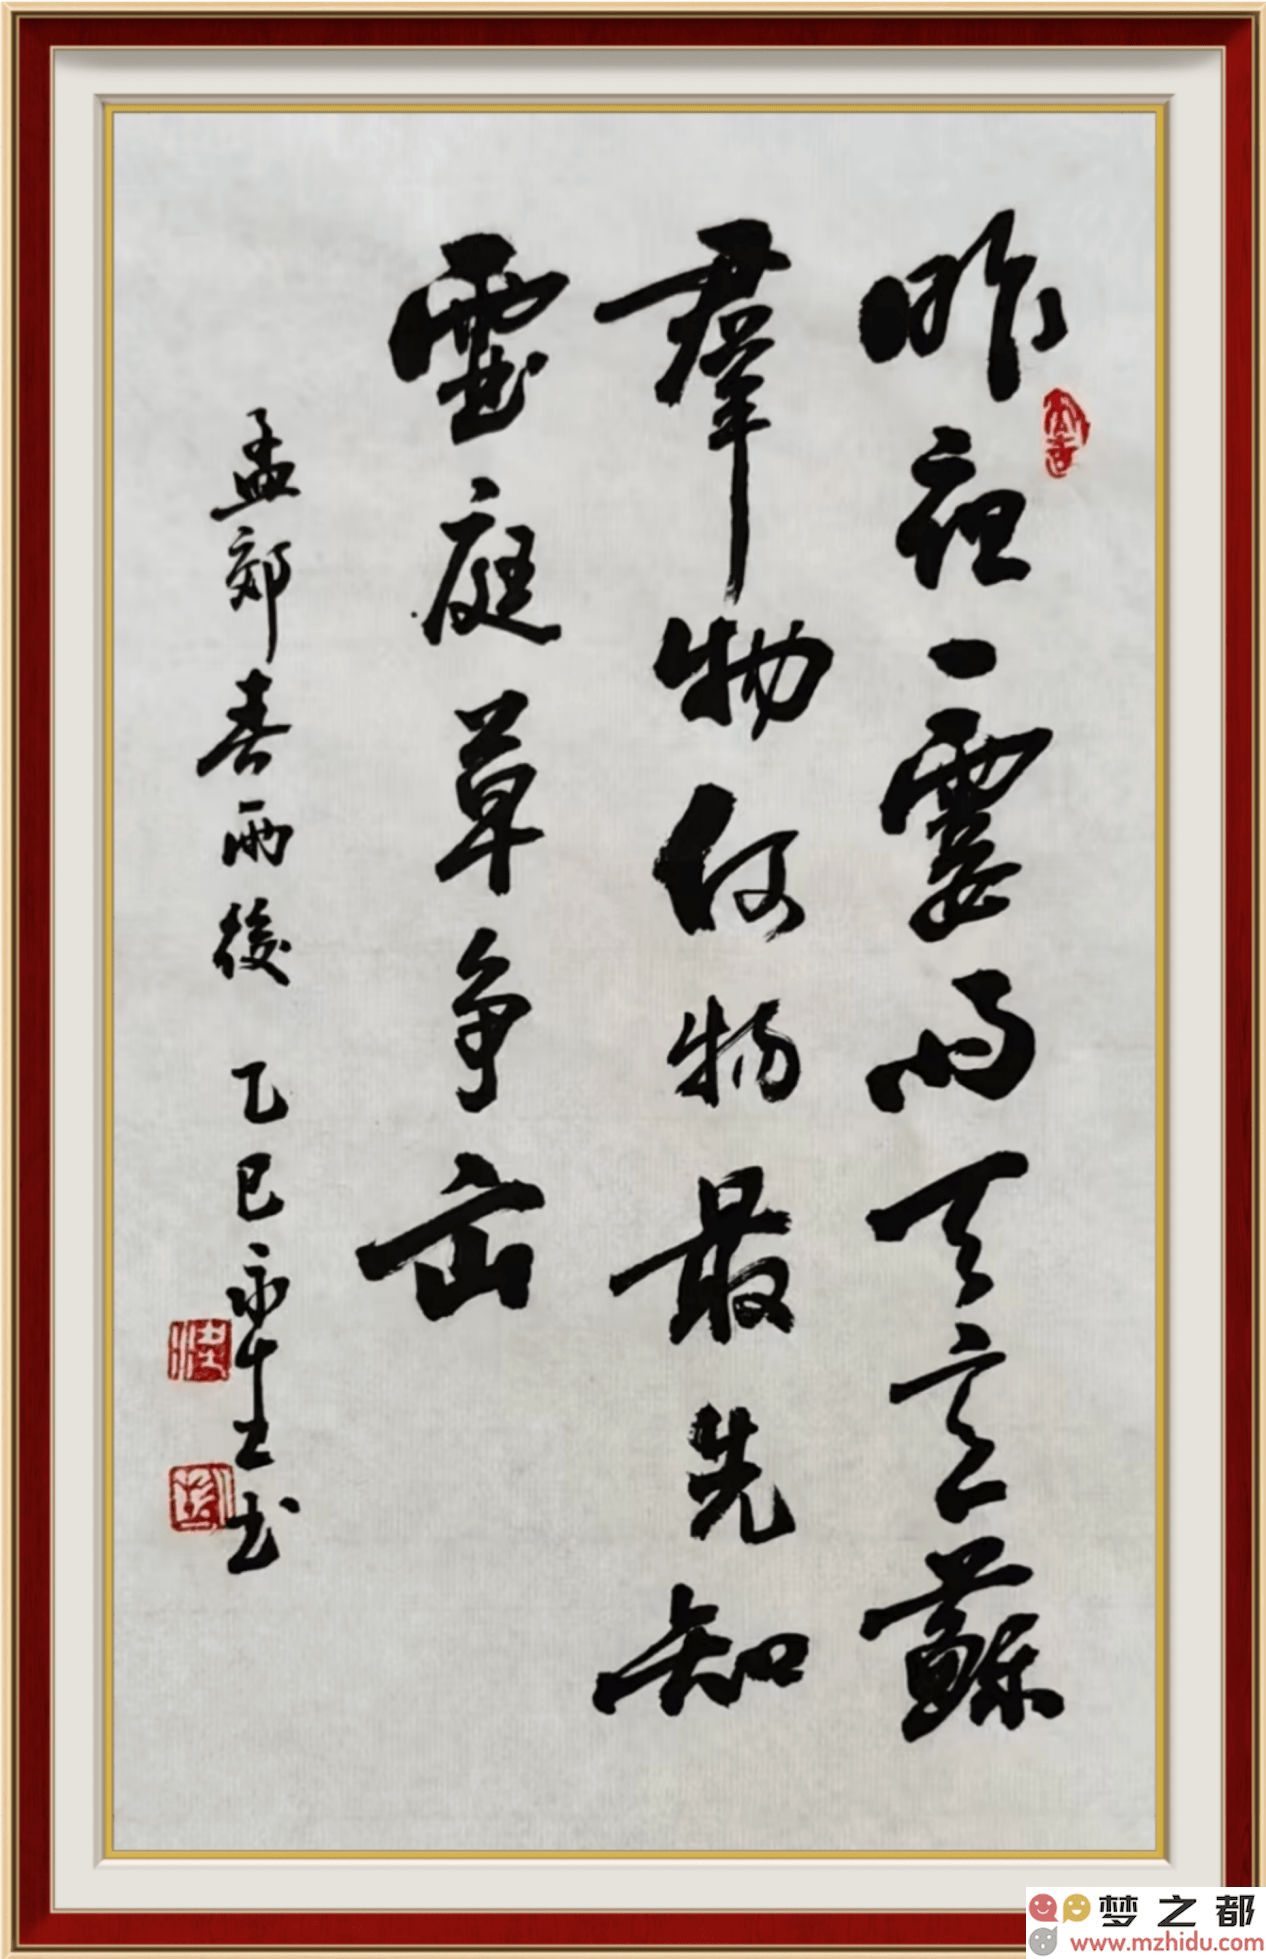 昨夜一霎雨天意蘇
羣物何物最先知
虚庭草争出
孟郊春雨後 乙巳永生书
梦之都
www.mzhidu.com